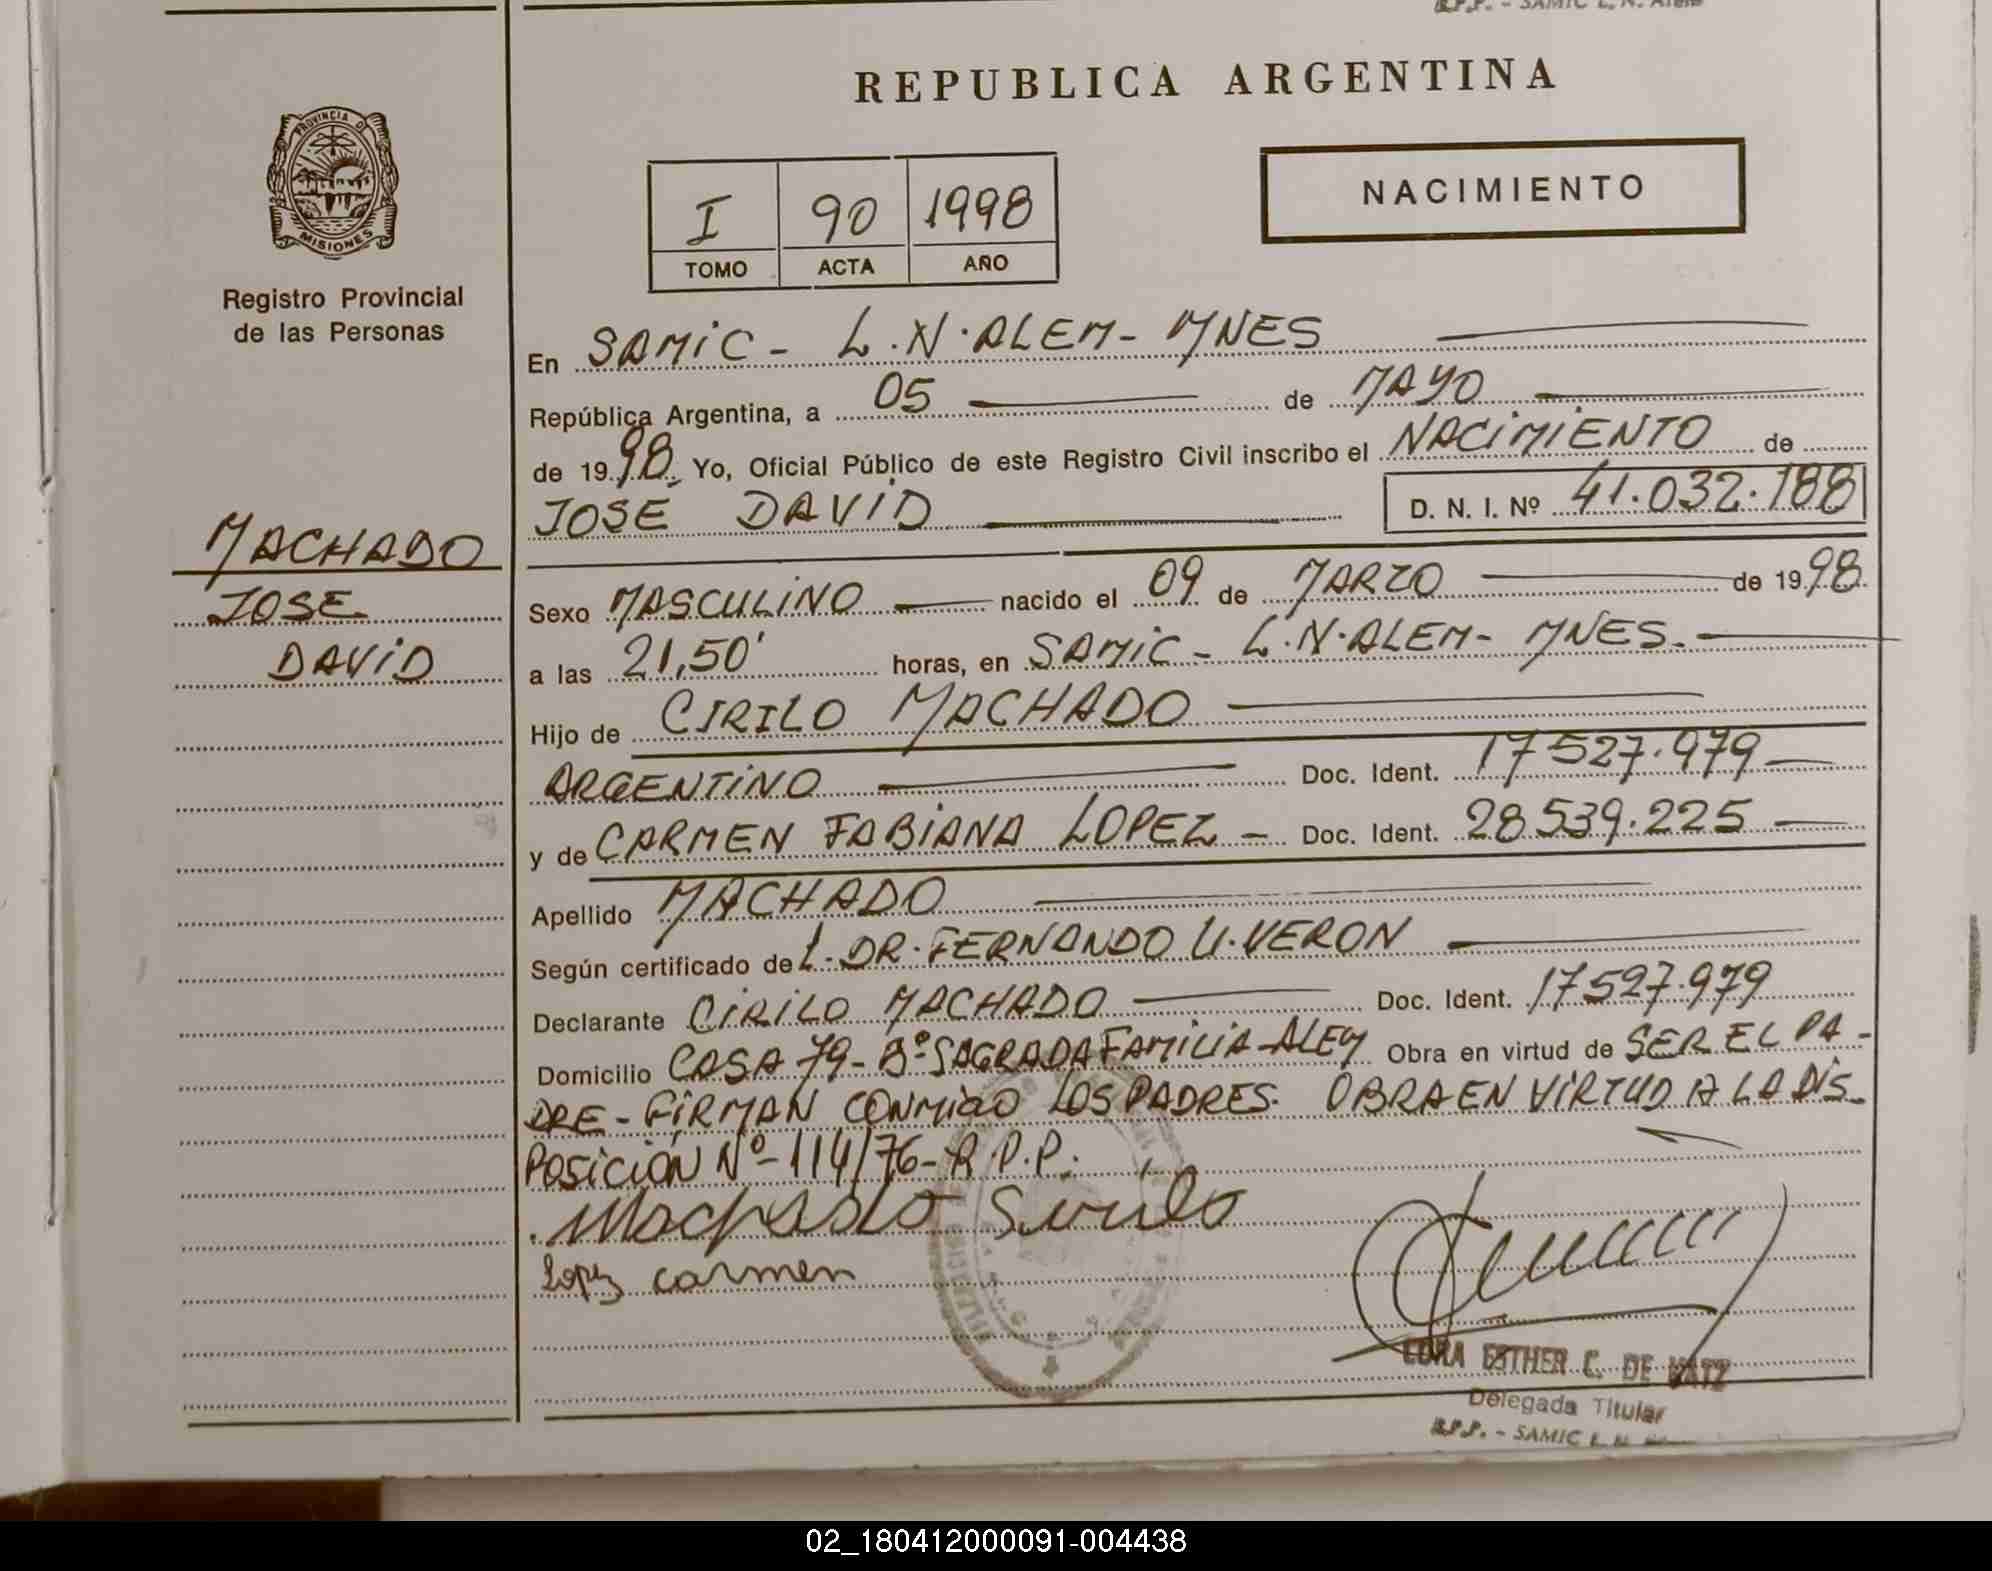 R.P.P. - SAMIC L. N. Alem
REPUBLICA ARGENTINA
PROVINCIA D
MISIONES
Registro Provincial
de las Personas
I 90 1998
TOMO ACTA AÑO
NACIMIENTO
En SAMIC - L.N.ALEM - MNES
República Argentina, a 05 de MAYO
de 1998. Yo, Oficial Público de este Registro Civil inscribo el NACIMIENTO de
JOSE DAVID D. N. I. Nº 41.032.188
MACHADO
JOSE
DAVID
Sexo MASCULINO nacido el 09 de MARZO de 1998
a las 21,50' horas, en SAMIC - L.N.ALEM - MNES.-
Hijo de CIRILO MACHADO
ARGENTINO Doc. Ident. 17527.979
y de CARMEN FABIANA LOPEZ - Doc. Ident. 28.539.225
Apellido MACHADO
Según certificado de L. DR. FERNANDO U. VERON
Declarante CIRILO MACHADO Doc. Ident. 17527.979
Domicilio CASA 79 - Bº SAGRADA FAMILIA - ALEM Obra en virtud de SER EL PA-
DRE - FIRMAN CONMIGO LOS PADRES. OBRA EN VIRTUD A LA DIS-
POSICION Nº - 114/76 - R.P.P.
Machado Sirilo
Lopez carmen
ESTHER C. DE
Delegada Titular
R.P.P. - SAMIC L. N.
02_180412000091-004438